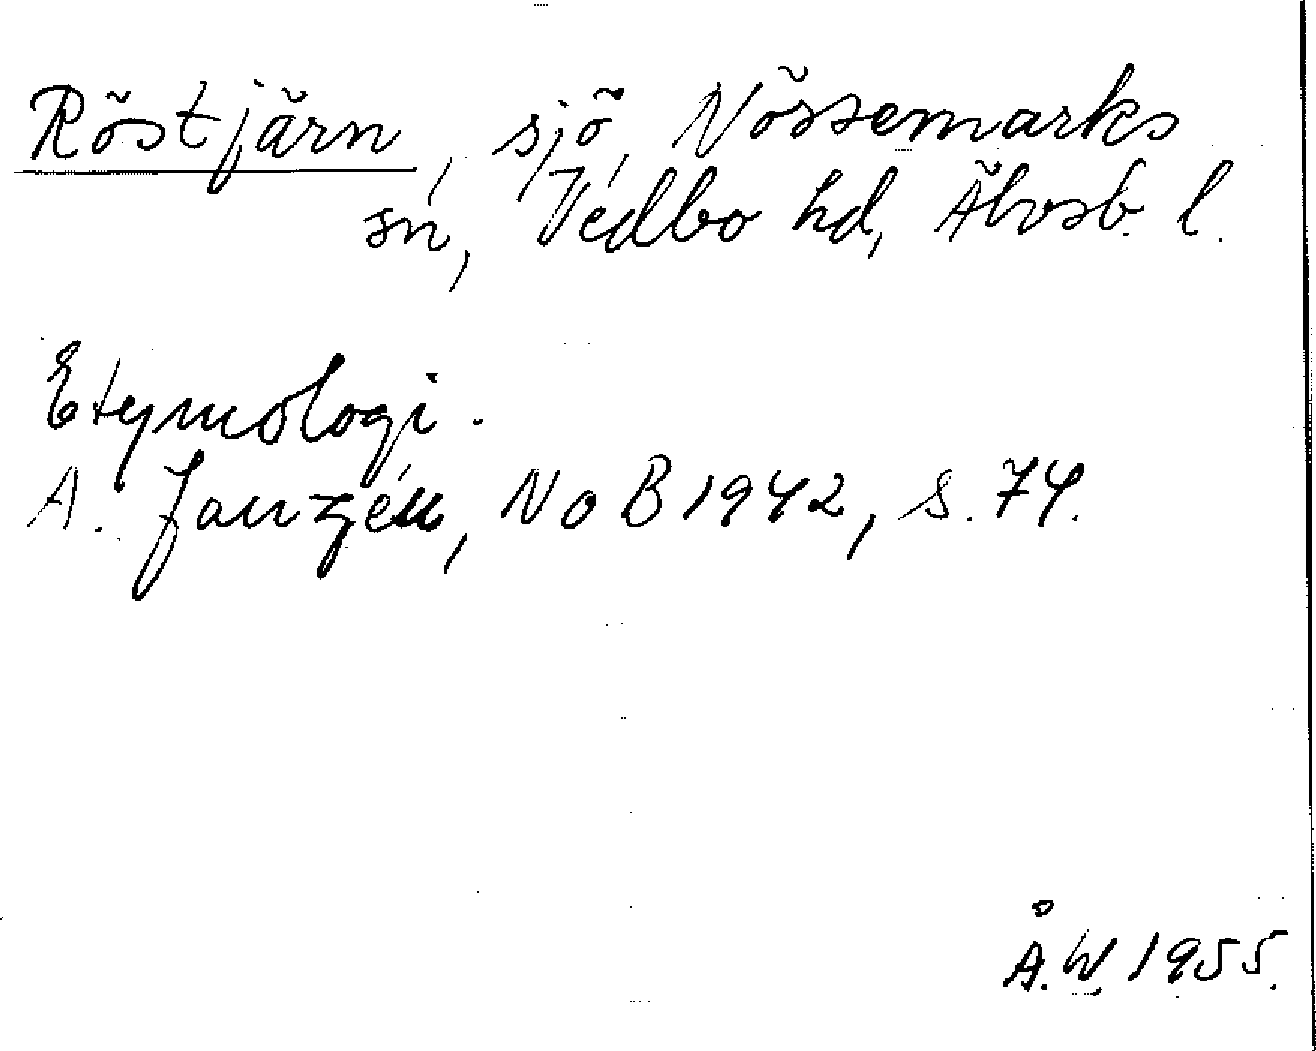 Röstjärn, sjö, Nössemarks
sn, Vedbo hd, Älvsb. l.
Etymologi.
A. Janzén, NoB 1942, s. 74.
Å.W. 1955.